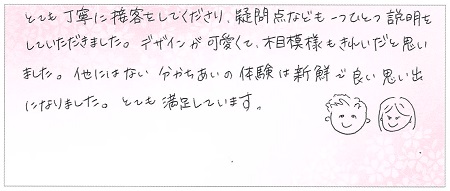 とても丁寧に接客をしてくださり、疑問点なども一つひとつ説明を
していただきました。デザインが可愛くて、木目模様もきれいだと思い
ました。他にはない分かちあいの体験は新鮮で良い思い出
になりました。とても満足しています。